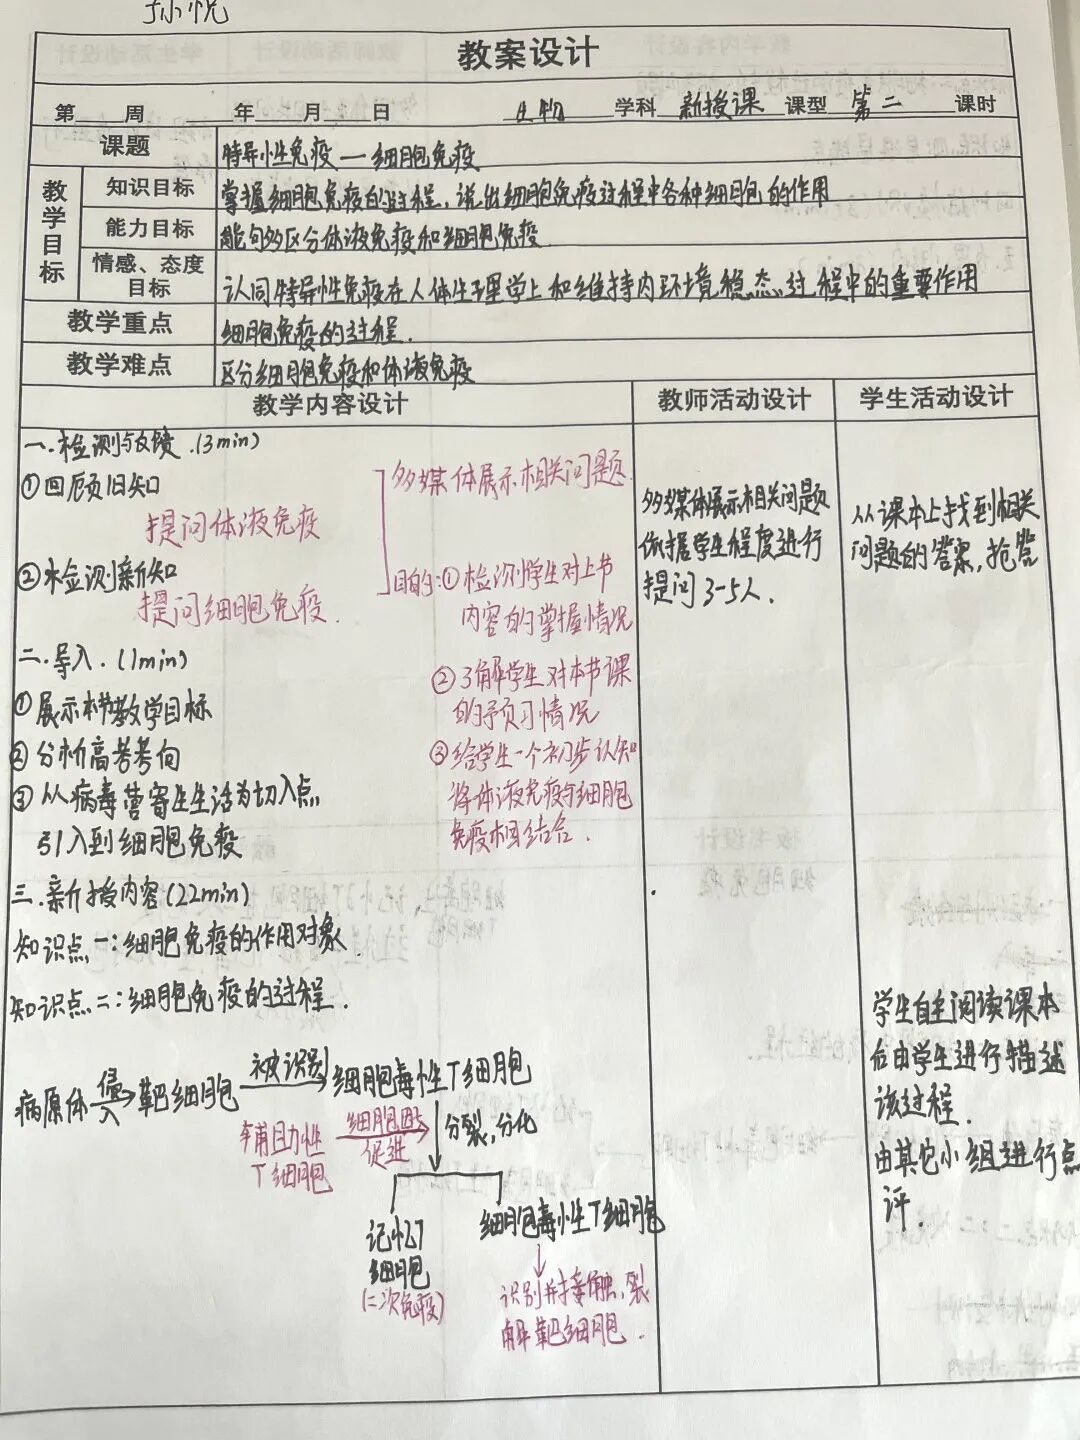 孙悦
教案设计
第 周 年 月 日 生物 学科 新授课 课型 第二 课时
课题 特异性免疫—细胞免疫
教学目标
知识目标 掌握细胞免疫的过程，说出细胞免疫过程中各种细胞的作用
能力目标 能够区分体液免疫和细胞免疫.
情感、态度目标 认同特异性免疫在人体生理学上和维持内环境稳态过程中的重要作用
教学重点 细胞免疫的过程.
教学难点 区分细胞免疫和体液免疫
教学内容设计 教师活动设计 学生活动设计
一.检测与反馈.(3min)
①回顾旧知
提问体液免疫
②检测新知
提问细胞免疫.
多媒体展示相关问题.
目的:①检测学生对上节
内容的掌握情况
②了解学生对本节课
的预习情况
③给学生一个初步认知
将体液免疫与细胞
免疫相结合.
二.导入.(1min)
①展示本节教学目标
②分析高考考向
③从病毒营寄生生活为切入点
引入到细胞免疫
三.新授内容(22min)
知识点一:细胞免疫的作用对象
知识点二:细胞免疫的过程.
病原体 侵入→ 靶细胞 被识别→ 细胞毒性T细胞
辅助性
T细胞
细胞因子
促进
分裂,分化
记忆T
细胞
(二次免疫)
细胞毒性T细胞
识别并接触,裂
解靶细胞.
多媒体展示相关问题
依据学生程度进行
提问3-5人.
从课本上找到相关
问题的答案,抢答
学生自主阅读课本
后由学生进行描述
该过程.
由其它小组进行点
评.